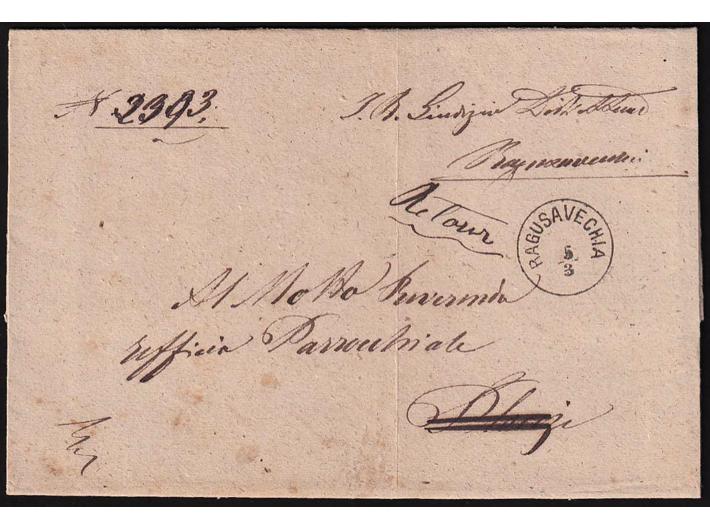 N. 2393.
I. R. Giudizio Distrettuale
Ragusavecchia
Retour
RAGUSAVECHIA
5/3
Al Molto Reverendo
Ufficio Parrocchiale